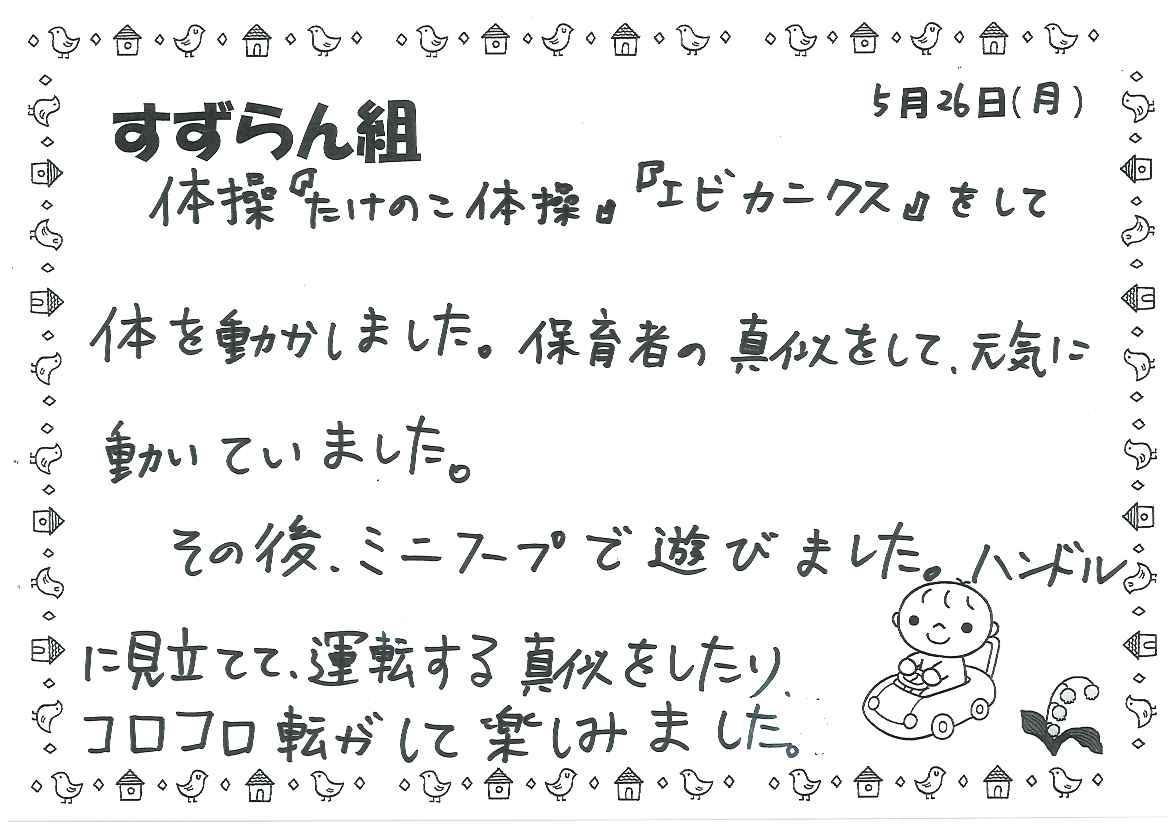 5月26日(月)
すずらん組
体操『たけのこ体操』『エビカニクス』をして
体を動かしました。保育者の真似をして、元気に
動いていました。
その後、ミニフープで遊びました。ハンドル
に見立てて、運転する真似をしたり、
コロコロ転がして楽しみました。